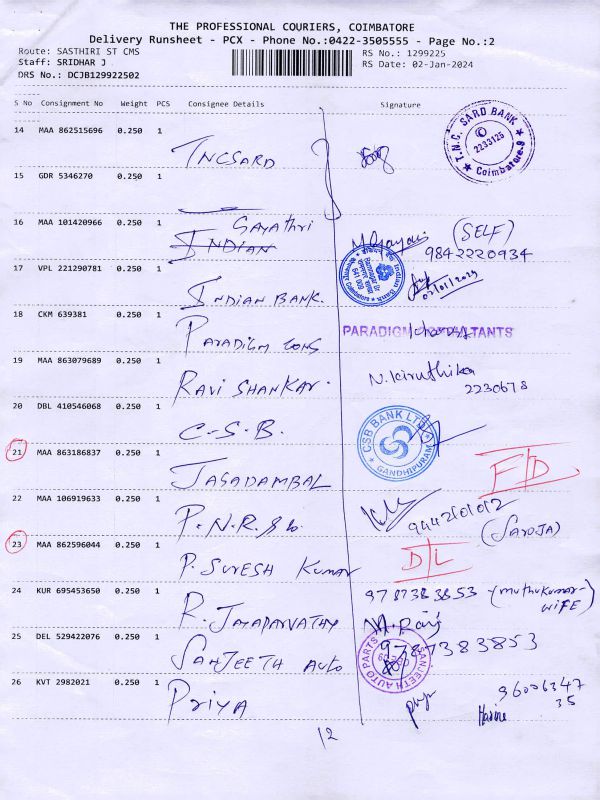 THE PROFESSIONAL COURIERS, COIMBATORE
Delivery Runsheet - PCX - Phone No.:0422-3505555 - Page No.:2
Route: SASTHIRI ST CMS
RS No.: 1299225
Staff: SRIDHAR J
RS Date: 02-Jan-2024
DRS No.: DCJB129922502
S No Consignment No Weight PCS Consignee Details Signature
14 MAA 862515696 0.250 1
TNCSARD
T.N.C. SARD BANK
2233125
Coimbatore-9
15 GDR 5346270 0.250 1
16 MAA 101420966 0.250 1
Gayathri
INDIAN
(SELF)
9842220934
17 VPL 221290781 0.250 1
INDIAN BANK.
02/01/2024
Indian Bank
641 009
18 CKM 639381 0.250 1
PARADIGM CONS
PARADIGM CONSULTANTS
19 MAA 863079689 0.250 1
RAVI SHANKAR.
N. Kiruthika
2230678
20 DBL 410546068 0.250 1
C-S-B.
CSB BANK LTD.
GANDHIPURAM
21 MAA 863186837 0.250 1
JAGADAMBAL
F/D
22 MAA 106919633 0.250 1
P.N.R. & Co.
(SAROJA)
23 MAA 862596044 0.250 1
P. SURESH KUMAR
D/L
24 KUR 695453650 0.250 1
R. JAYAPARVATHY
9787383853 (muthukumar-
WIFE)
25 DEL 529422076 0.250 1
SANJEETH AUTO
9787383853
SANJEETH AUTO PARTS
26 KVT 2982021 0.250 1
PRIYA
96006347
35
12